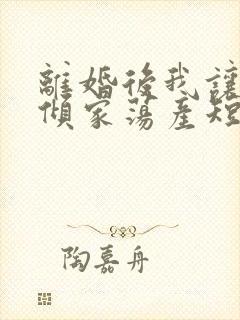 離婚後我讓
傾家蕩產短
陶嘉舟